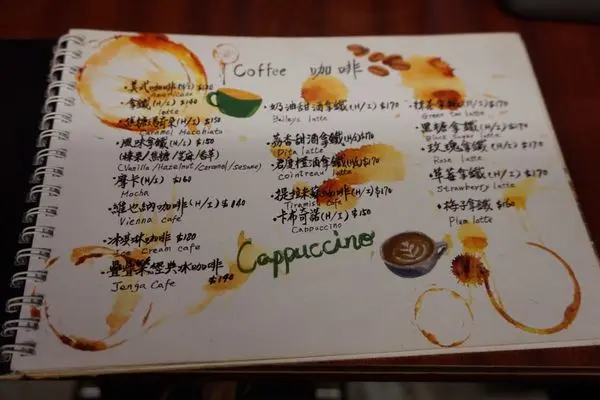 Coffee 咖啡
·美式咖啡(H/I) $120
Americano
·拿鐵(H/I) $140
latte
·焦糖瑪奇朵(H/I) $150
Caramel Macchiato
·風味拿鐵(H/I) $150
(榛果/焦糖/芝麻/香草)
(Vanilla/Hazelnut/Caramel/sesame)
·摩卡(H/I) $160
Mocha
·維也納咖啡(H/I) $140
Vienna cafe
·冰淇淋咖啡 $180
Ice Cream cafe
經典冰咖啡 $140
Jenga Cafe
·奶油甜酒拿鐵(H/I) $170
Baileys latte
荔香甜酒拿鐵(H/I) $170
Dita latte
·君度橙酒拿鐵(H/I) $170
cointreau latte
·提拉米蘇咖啡(H/I) $170
Tiramisu Cafe
·卡布奇諾(H/I) $150
Cappuccino
Cappuccino
·抹茶拿鐵(H/I) $170
Green tea latte
·黑糖拿鐵(H/I) $170
Black Sugar latte
·玫瑰拿鐵(H/I) $170
Rose latte
·草莓拿鐵(H/I) $170
Strawberry latte
·梅子拿鐵 $160
Plum latte